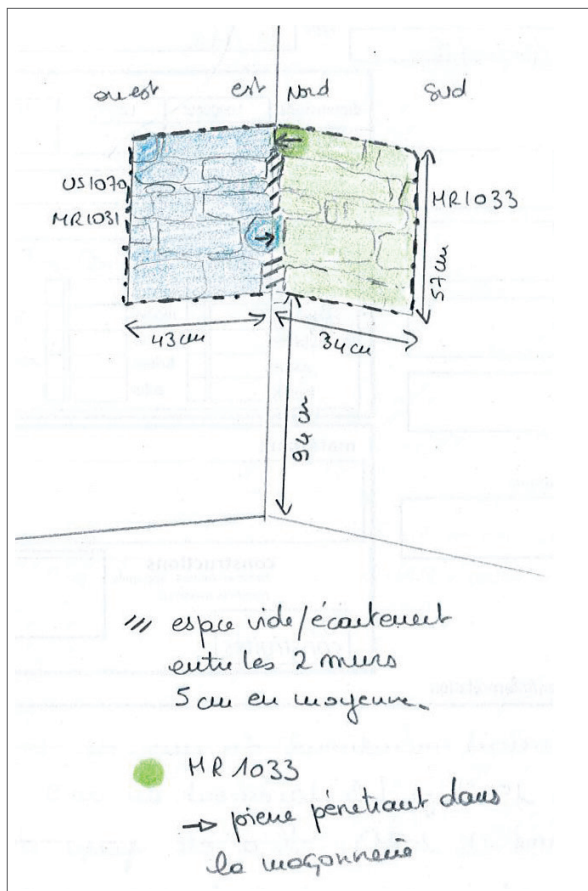 ouest est Nord Sud
US1070
MR1031
MR1033
57cm
43cm
34cm
94cm
/// espace vide/écartement
entre les 2 murs
5 cm en moyenne.
MR 1033
→ pierre pénétrant dans
la maçonnerie
constructions